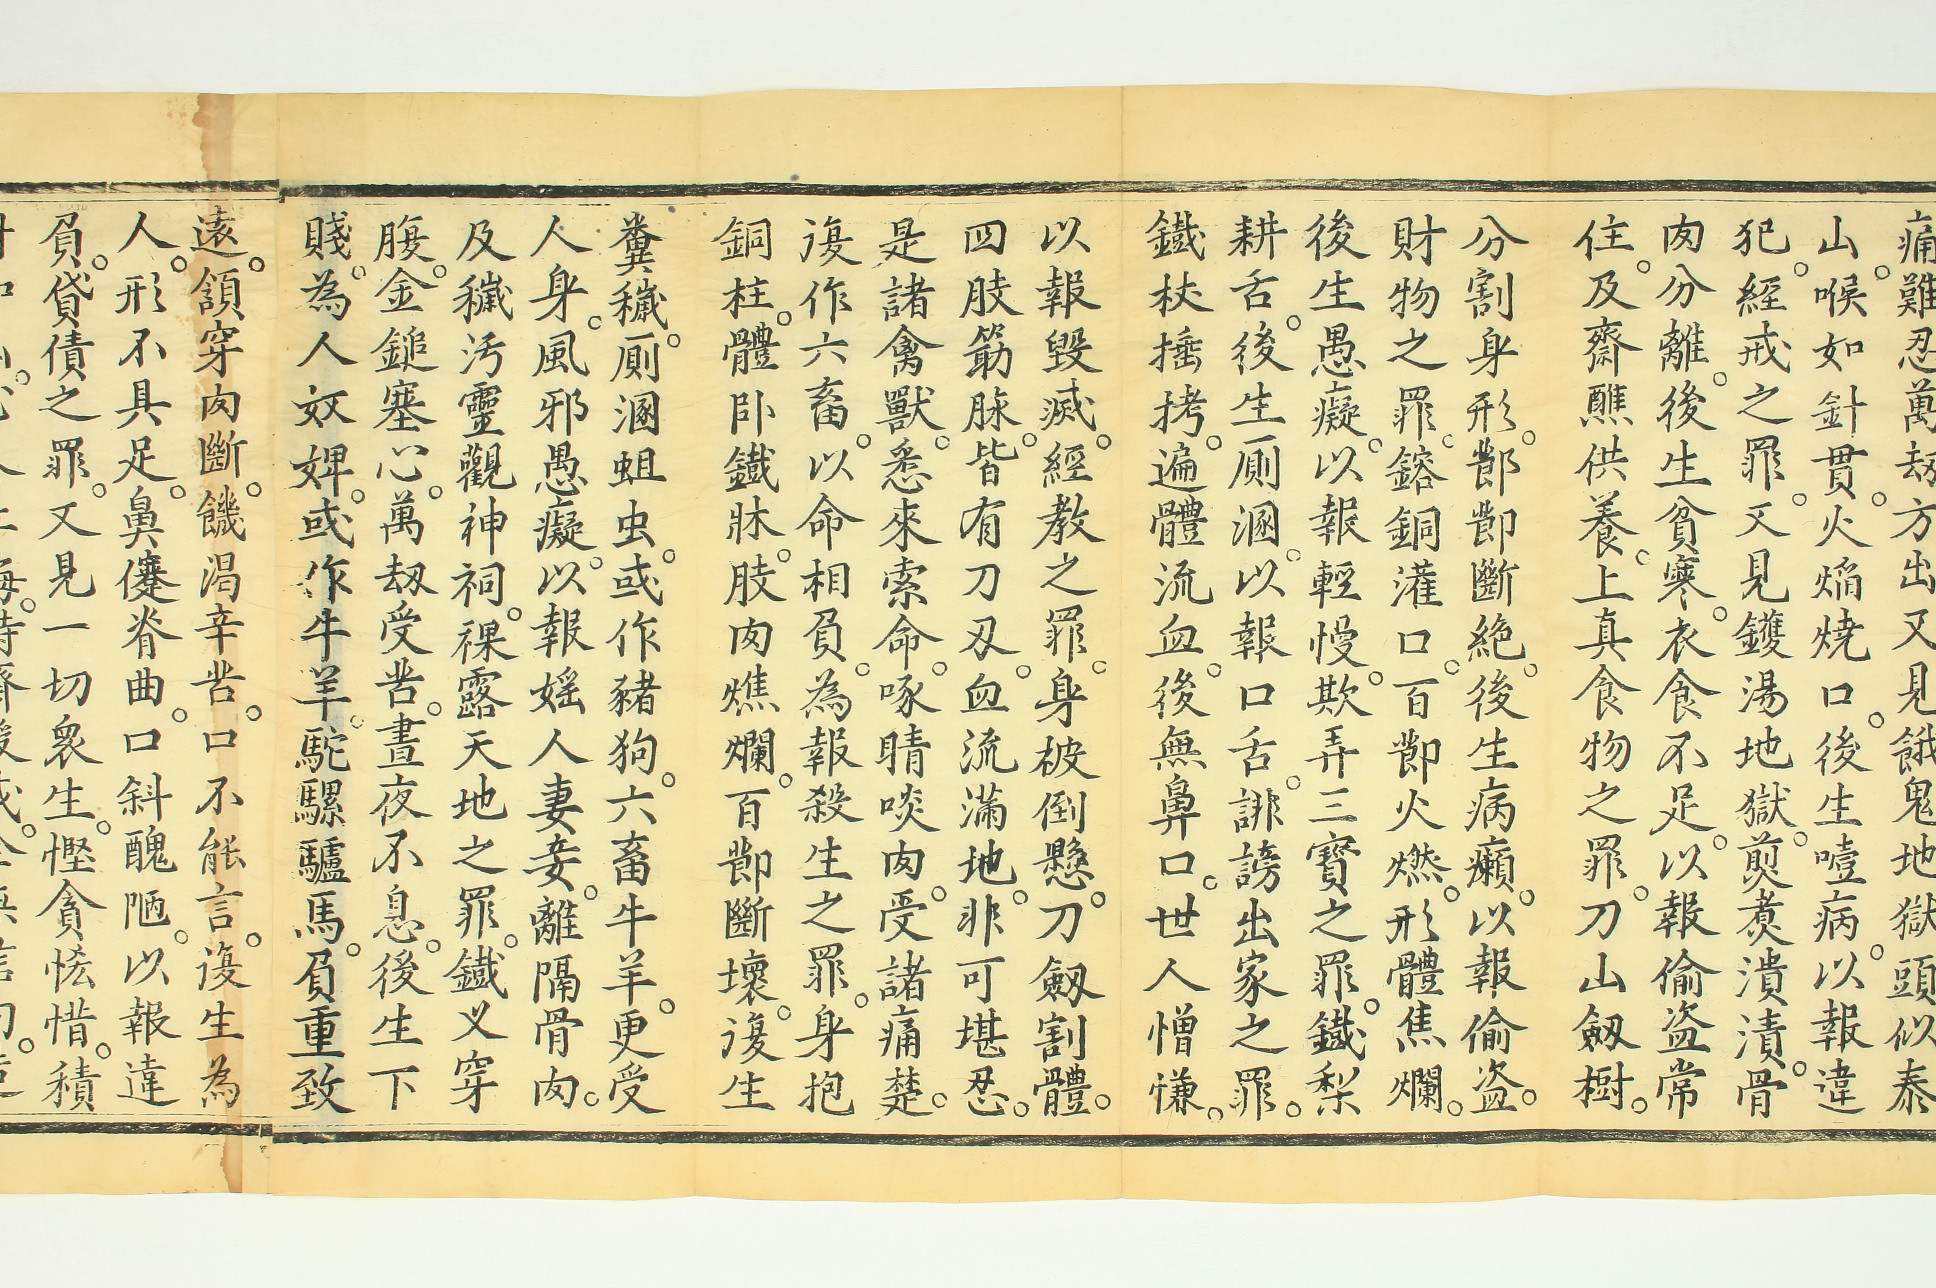 痛難忍萬劫方出又見餓鬼地獄頭似泰
山。喉如針貫。火焰燒口。後生噎病。以報違
犯。經戒之罪。又見鑊湯地獄。煎煮潰漬。骨
肉分離。後生貧寒。衣食不足。以報偷盜常
住。及齋醮供養。上真食物之罪。刀山劒樹。
分割身形。節節斷絕。後生病癩。以報偷盜。
財物之罪。鎔銅灌口。百節火燃。形體焦爛。
後生愚癡。以報輕慢。欺弄三寶之罪。鐵犁
耕舌。後生厠溷。以報口舌。誹謗出家之罪。
鐵杖捶拷。遍體流血。後無鼻口。世人憎慊。
以報毀滅。經教之罪。身被倒懸。刀劒割體。
四肢筋脉。皆有刀刃。血流滿地。非可堪忍。
是諸禽獸。悉來索命。啄睛啖肉。受諸痛楚。
復作六畜。以命相負。為報殺生之罪。身抱
銅柱。體卧鐵牀。肢肉燋爛。百節斷壞。復生
糞穢。厠溷蛆虫。或作豬狗。六畜牛羊。更受
人身。風邪愚癡。以報婬人妻妾。離隔骨肉。
及穢污靈觀神祠。裸露天地之罪。鐵义穿
腹。金鎚塞心。萬劫受苦。晝夜不息。後生下
賤。為人奴婢。或作牛羊。駝騾驢馬。負重致
遠。領穿肉斷。饑渴辛苦。口不能言。復生為
人。形不具足。鼻㒩脊曲。口斜醜陋。以報違
負。貸債之罪。又見一切衆生。慳貪悋惜。積